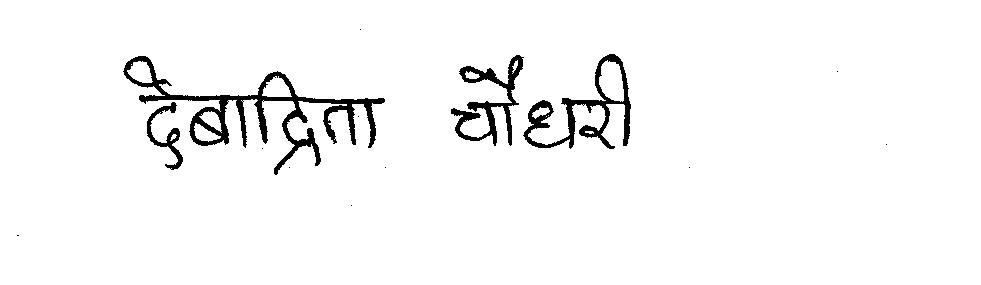 देबाद्रिता चौधरी